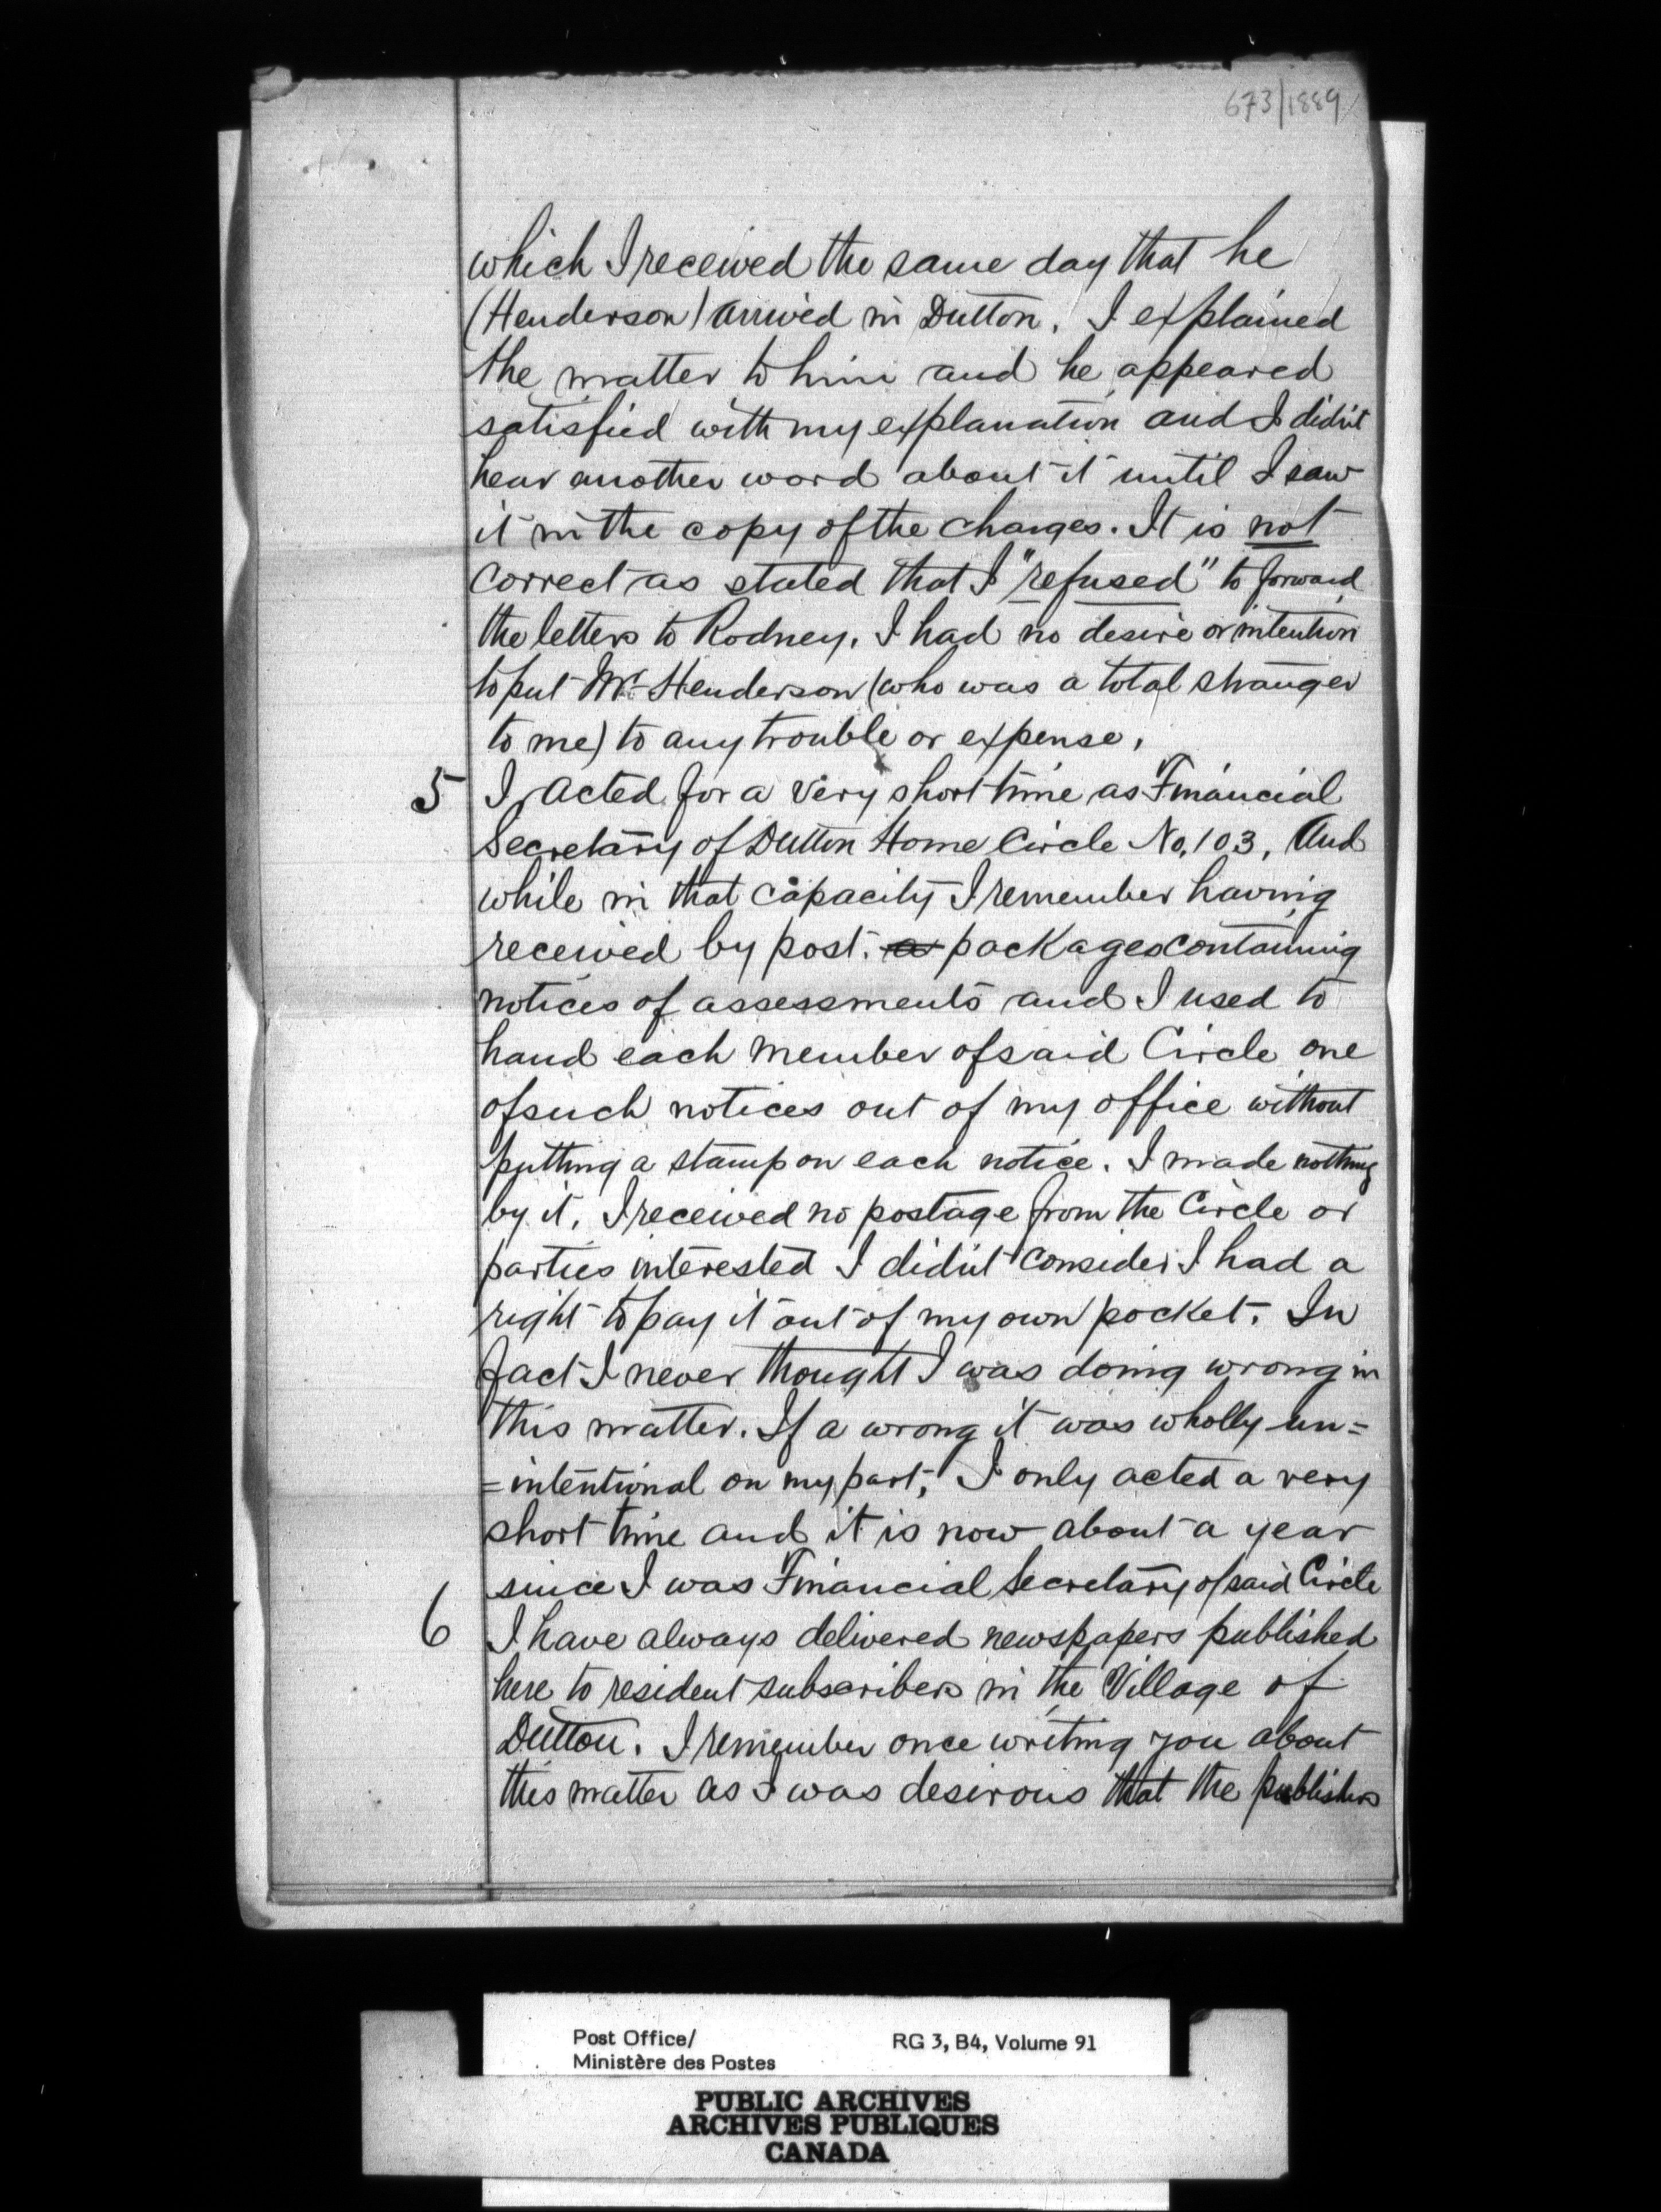 673/1889
which I received the same day that he
(Henderson) arrived in Dutton. I explained
the matter to him and he appeared
satisfied with my explanation and I didn't
hear another word about it until I saw
it in the copy of the charges. It is not
correct as stated that I "refused" to forward
the letters to Rodney. I had no desire or intention
to put Mr. Henderson (who was a total stranger
to me) to any trouble or expense.
5 I acted for a very short time as Financial
Secretary of Dutton Home Circle No. 103, and
while in that capacity I remember having
received by post. a packages containing
notices of assessments and I used to
hand each member of said Circle one
of such notices out of my office without
putting a stamp on each notice. I made nothing
by it, I received no postage from the Circle or
parties interested I didn't consider I had a
right to pay it out of my own pocket. In
fact I never thought I was doing wrong in
this matter. If a wrong it was wholly un=
=intentional on my part, I only acted a very
short time and it is now about a year
since I was Financial Secretary of said Circle
6 I have always delivered newspapers published
here to resident subscribers in the Village of
Dutton. I remember once writing you about
this matter as I was desirous that the publishers
Post Office/ RG 3, B4, Volume 91
Ministère des Postes
PUBLIC ARCHIVES
ARCHIVES PUBLIQUES
CANADA